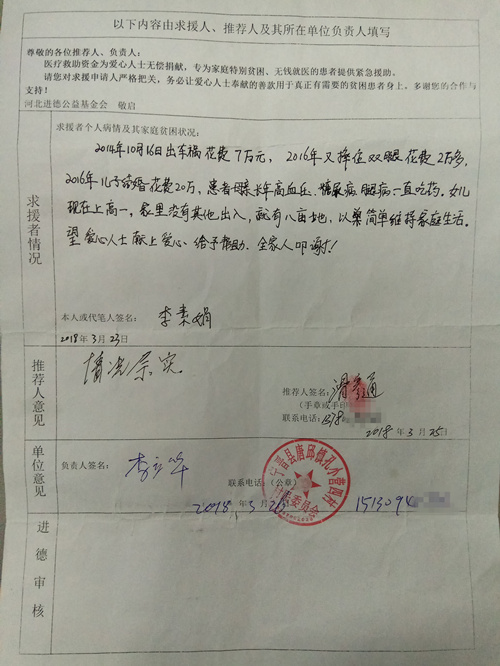 以下内容由求援人、推荐人及其所在单位负责人填写
尊敬的各位推荐人、负责人：
医疗救助资金为爱心人士无偿捐献，专为家庭特别贫困、无钱就医的患者提供紧急援助。
请您对求援申请人严格把关，务必让爱心人士奉献的善款用于真正有需要的贫困患者身上。多谢您的合作与
支持！
河北进德公益基金会 敬启
求援者情况
求援者个人病情及其家庭贫困状况：
2014年10月16日出车祸花费7万元，2016年又摔住双眼花费2万多，
2016年儿子结婚花费20万，患者母亲长年高血压、糖尿病、眼病一直吃药。女儿
现在上高一，家里没有其他出入，就有八亩地，以菜简单维持家庭生活。
望爱心人士献上爱心、给予帮助、全家人叩谢！
本人或代笔人签名：李素娟
2018年3月23日
推荐人意见
情况属实
推荐人签名：
（手章或手印）
联系电话：1378
2018年3月25日
单位意见
负责人签名：李
联系电话：（公章）
宁晋县唐邱镇孔小营四村
村民委员会
2018.3月26
1513094
进德审核